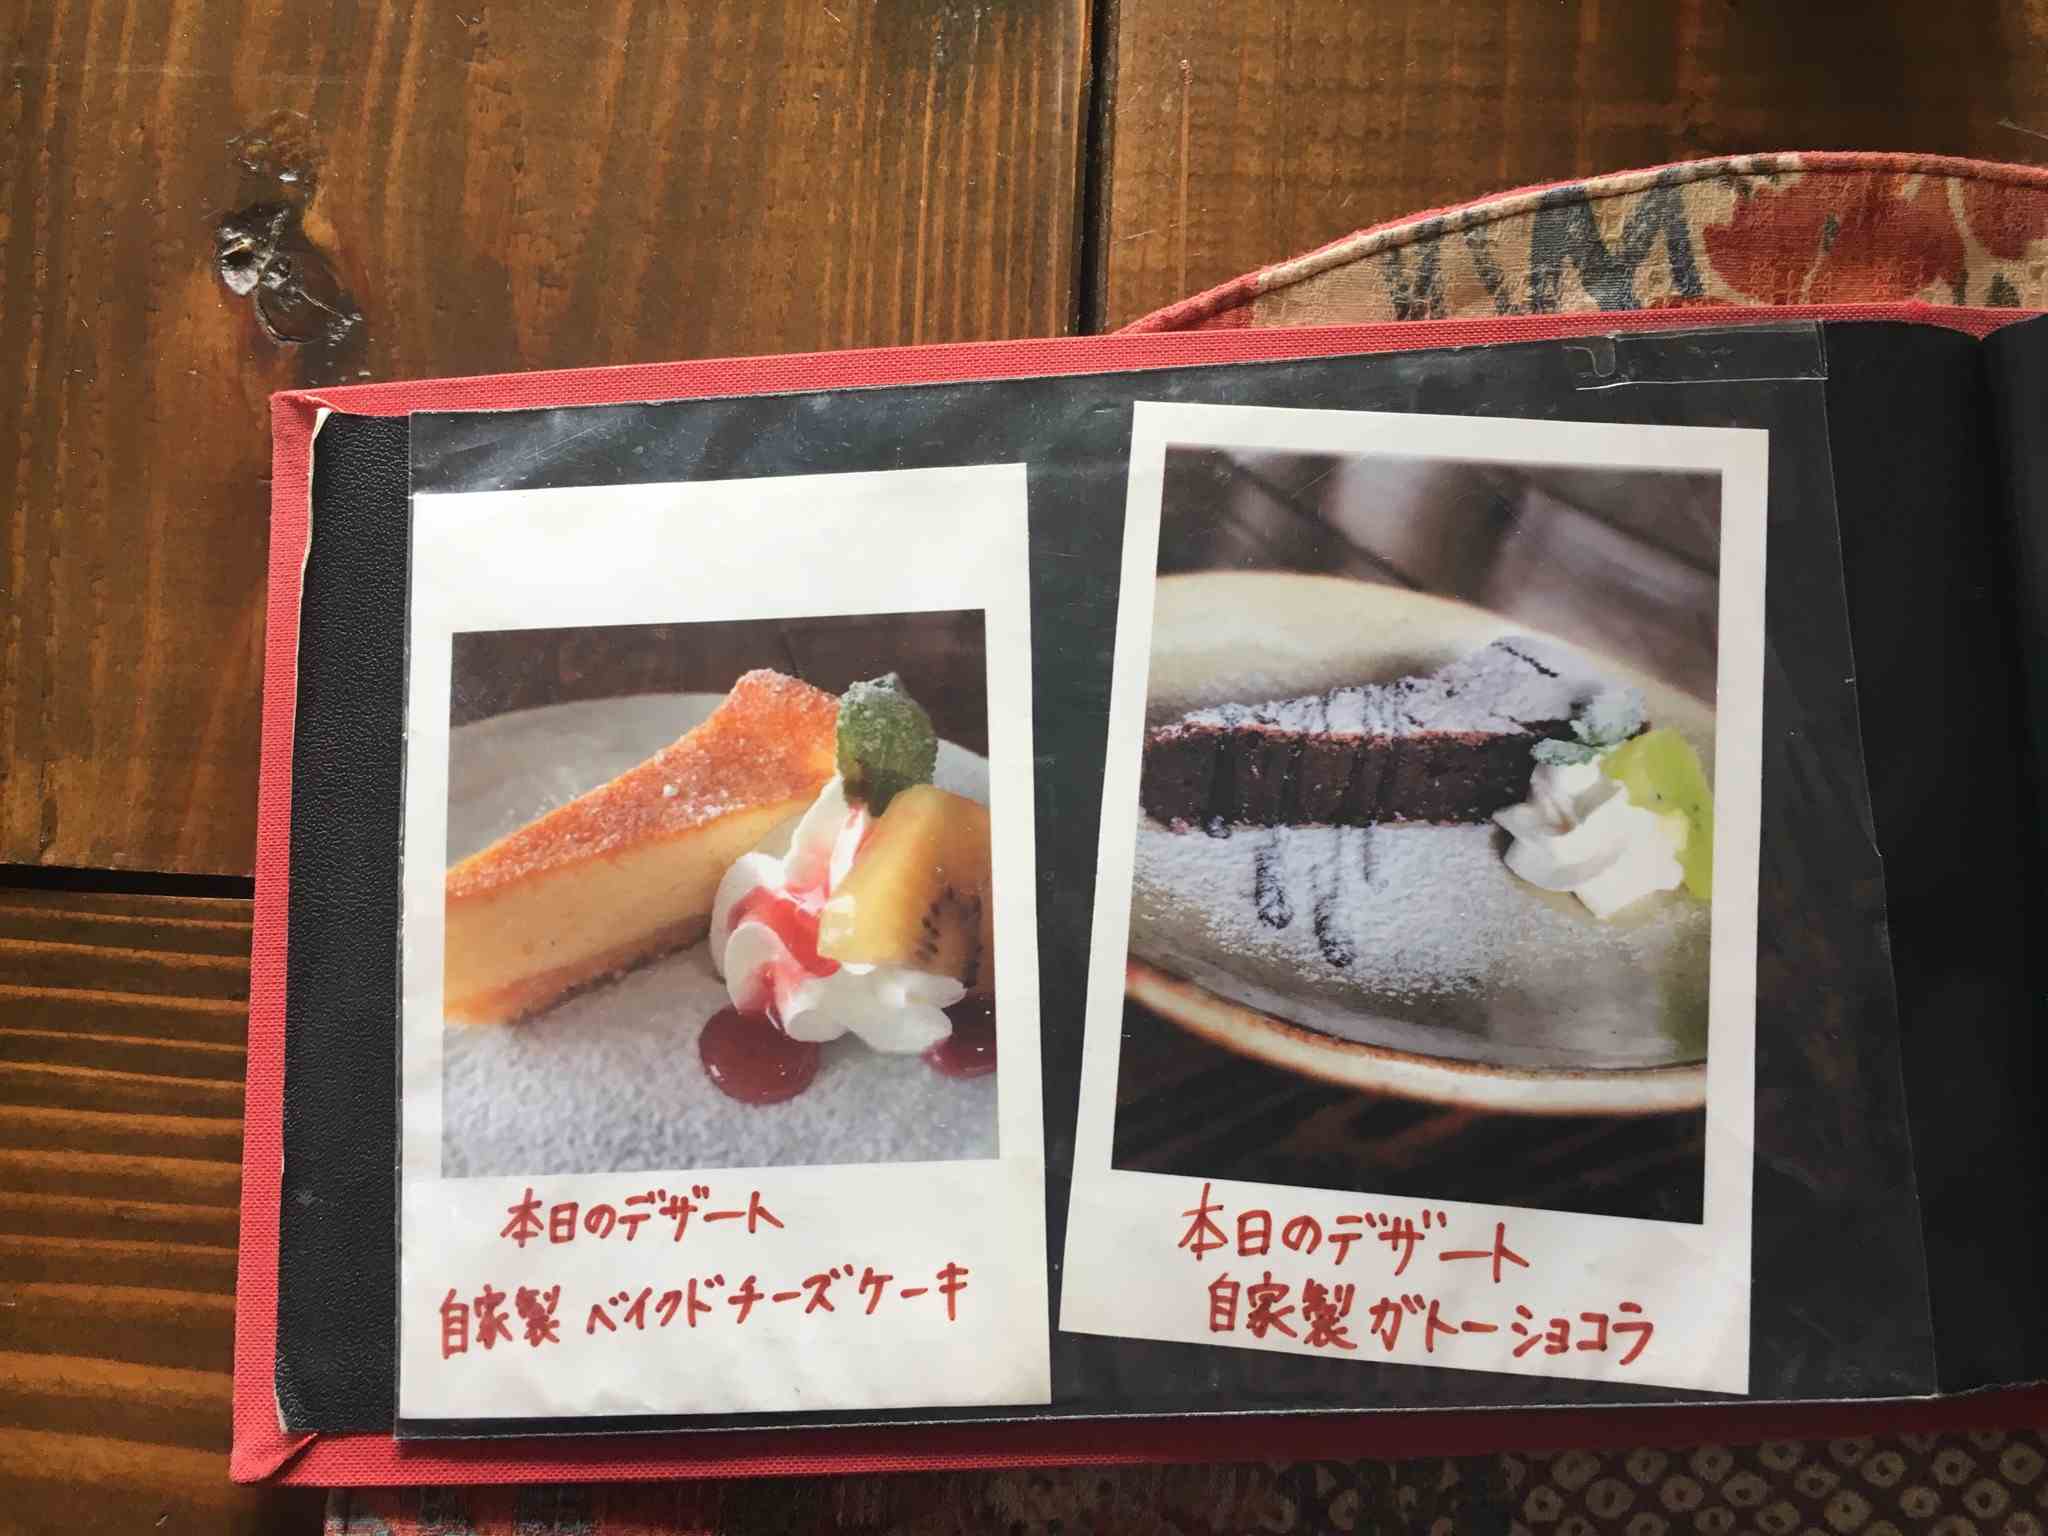 本日のデザート
自家製 ベイクドチーズケーキ
本日のデザート
自家製 ガトーショコラ